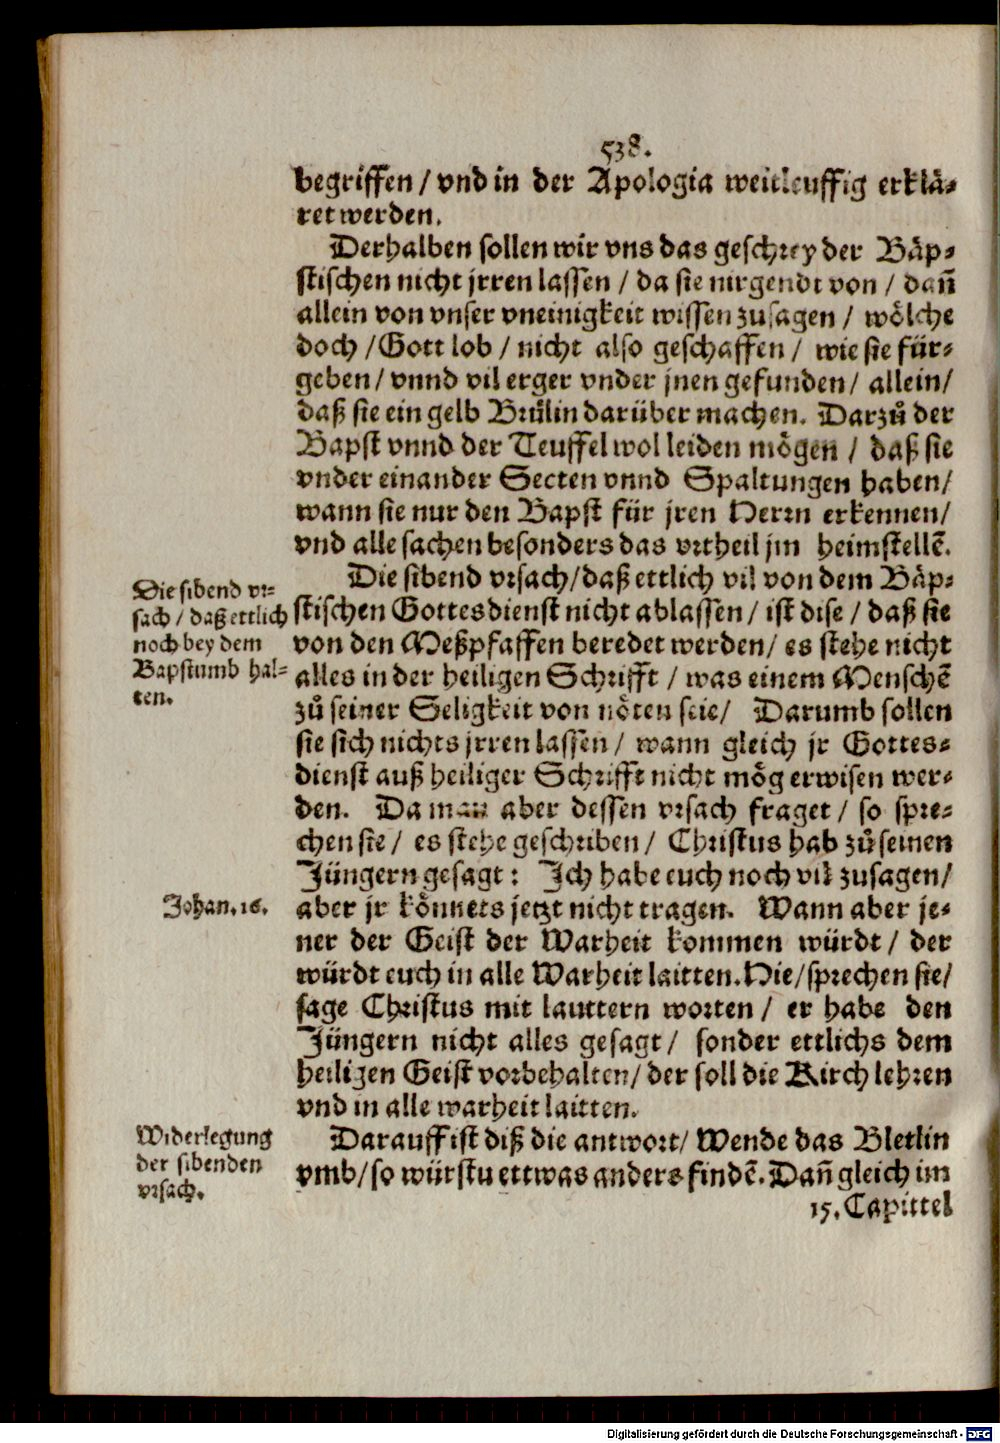 538.
begriffen / vnd in der Apologia weitleuffig erklä⸗
ret werden.
Derhalben sollen wir vns das geschrey der Bäp⸗
stischen nicht jrren lassen / da sie nirgendt von / dañ
allein von vnser vneinigkeit wissen zusagen / wölche
doch / Gott lob / nicht also geschaffen / wie sie für⸗
geben / vnnd vil erger vnder jnen gefunden / allein /
daß sie ein gelb Brülin darüber machen. Darzů der
Bapst vnnd der Teuffel wol leiden mögen / daß sie
vnder einander Secten vnnd Spaltungen haben /
wann sie nur den Bapst für jren Herrn erkennen /
vnd alle sachen besonders das vrtheil jm heimstellẽ.
Die sibend vr⸗
sach / daß ettlich
noch bey dem
Bapstumb hal⸗
ten.
Die sibend vrsach / daß ettlich vil von dem Bäp⸗
stischen Gottesdienst nicht ablassen / ist dise / daß sie
von den Meßpfaffen beredet werden / es stehe nicht
alles in der heiligen Schrifft / was einem Menschẽ
zů seiner Seligkeit von nöten seie / Darumb sollen
sie sich nichts jrren lassen / wann gleich jr Gottes⸗
dienst auß heiliger Schrifft nicht mög erwisen wer⸗
den. Da man aber dessen vrsach fraget / so spre⸗
chen sie / es stehe geschriben / Christus hab zů seinen
Jüngern gesagt : Ich habe euch noch vil zusagen /
Johan. 16.
aber jr könnets jetzt nicht tragen. Wann aber je⸗
ner der Geist der Warheit kommen würdt / der
würdt euch in alle Warheit laitten. Hie / sprechen sie /
sage Christus mit lauttern worten / er habe den
Jüngern nicht alles gesagt / sonder ettlichs dem
heiligen Geist vorbehalten / der soll die Kirch lehren
vnd in alle warheit laitten.
Widerlegung
der sibenden
vrsach.
Darauff ist diß die antwort / Wende das Bletlin
vmb / so würstu ettwas anders findẽ. Dañ gleich im
15. Capittel
Digitalisierung gefördert durch die Deutsche Forschungsgemeinschaft - DFG